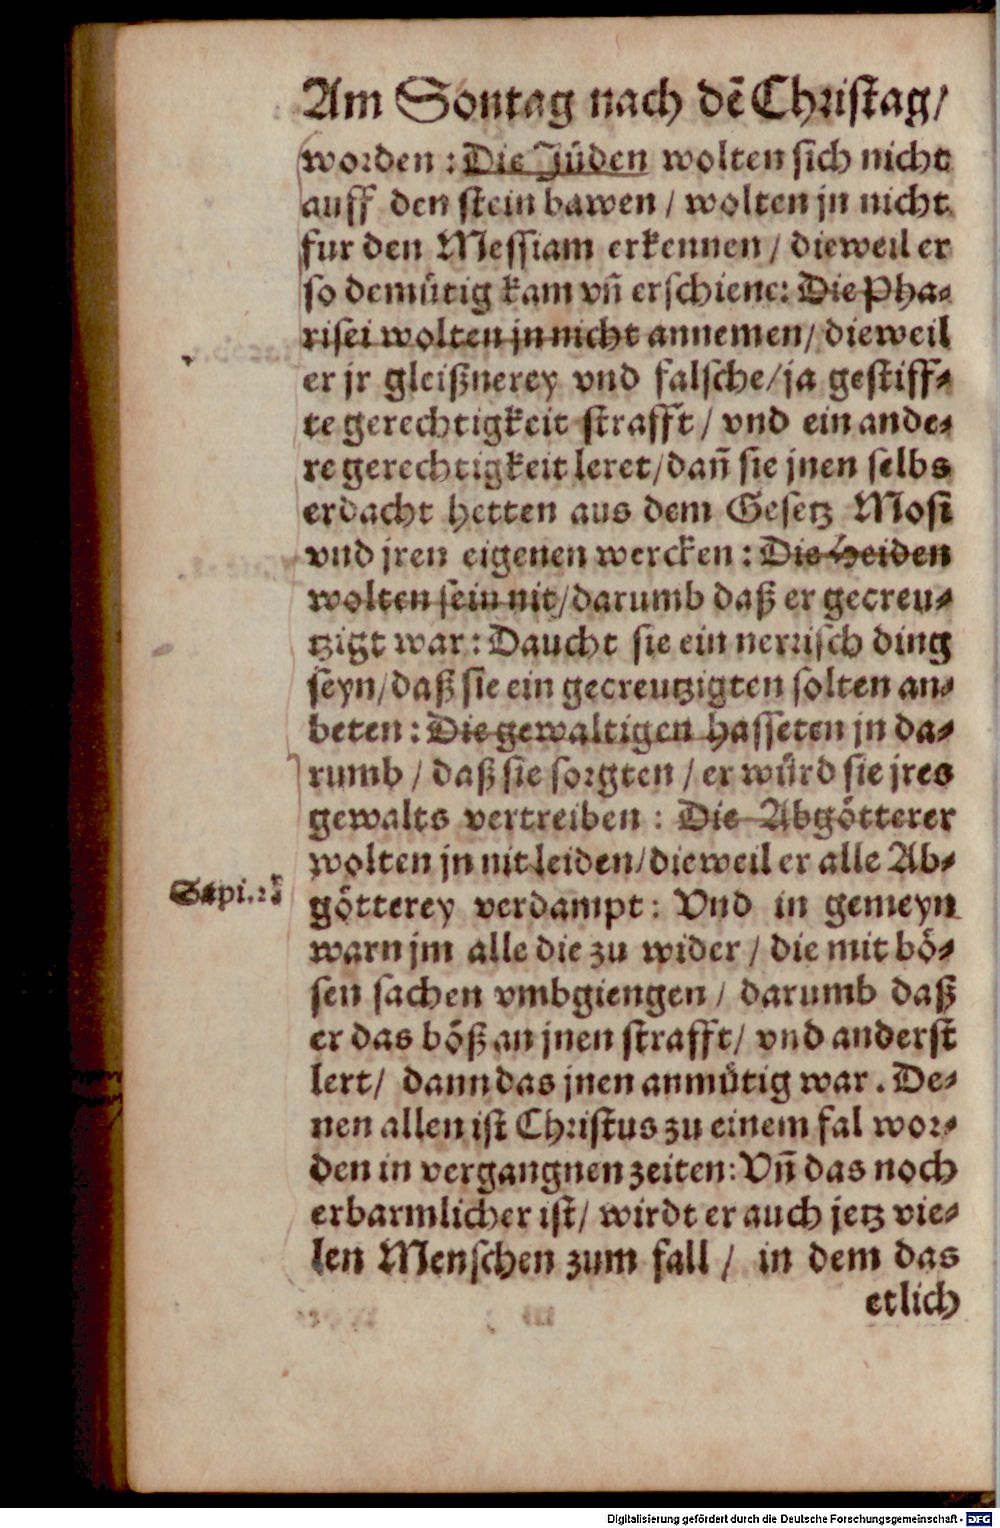 Am Sontag nach dẽ Christag/
worden: Die Jüden wolten sich nicht
auff den stein bawen / wolten jn nicht
fur den Messiam erkennen / dieweil er
so demütig kam vñ erschiene: Die Pha-
risei wolten jn nicht annemen/ dieweil
er jr gleißnerey vnd falsche/ja gestiff-
te gerechtigkeit strafft / vnd ein ande-
re gerechtigkeit leret/dañ sie jnen selbs
erdacht hetten aus dem Gesetz Mosi
vnd jren eigenen wercken: Die Heiden
wolten sein nit/darumb daß er gecreu-
tzigt war: Daucht sie ein nerrisch ding
seyn/daß sie ein gecreutzigten solten an-
beten: Die gewaltigen hasseten jn da-
rumb / daß sie sorgten / er würd sie jres
gewalts vertreiben: Die Abgötterer
wolten jn nit leiden/dieweil er alle Ab-
götterey verdampt: Vnd in gemeyn
Sapi.2
warn jm alle die zu wider / die mit bö-
sen sachen vmbgiengen / darumb daß
er das böß an jnen strafft/ vnd anderst
lert/ dann das jnen anmütig war. De-
nen allen ist Christus zu einem fal wor-
den in vergangnen zeiten: Vñ das noch
erbarmlicher ist/ wirdt er auch jetz vie-
len Menschen zum fall / in dem das
etlich
Digitalisierung gefördert durch die Deutsche Forschungsgemeinschaft - DFG